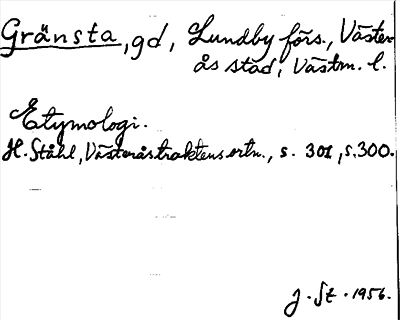 Gränsta, gd, Lundby förs., Väster-
ås stad, Västm. l.
Etymologi.
H. Ståhl, Västeråstraktens ortn., s. 301, s. 300.
J. St. 1956.